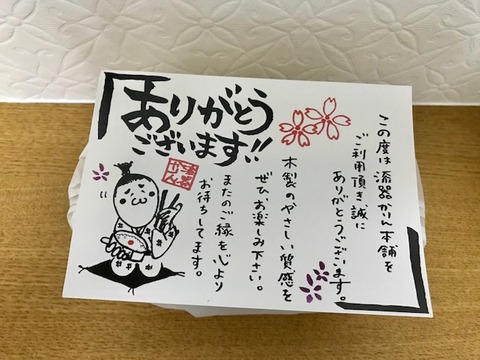 ありがとう
ございます!!
この度は 漆器かりん本舗を
ご利用頂き誠に
ありがとうございます。
木製のやさしい質感を
ぜひ、お楽しみ下さい。
またのご縁を心より
お待ちしてます。
漆器
かりん